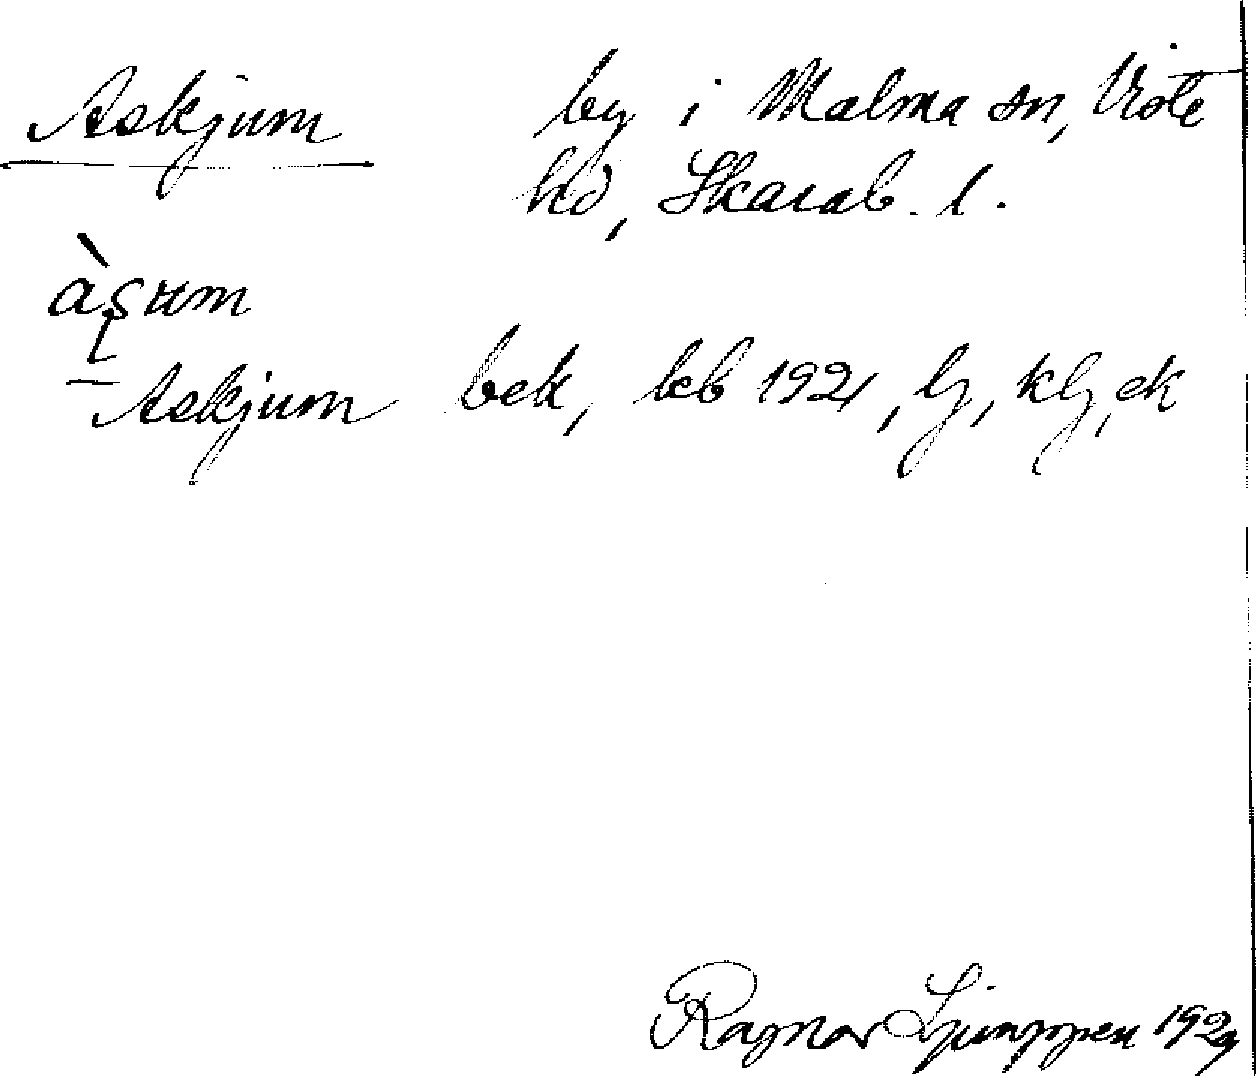 Askjum by i Malma sn, Viste
hd, Skarab. l.
Askjum bek, lcb 1921, lj, klj, ek
Ragnar Ljunggren 1929